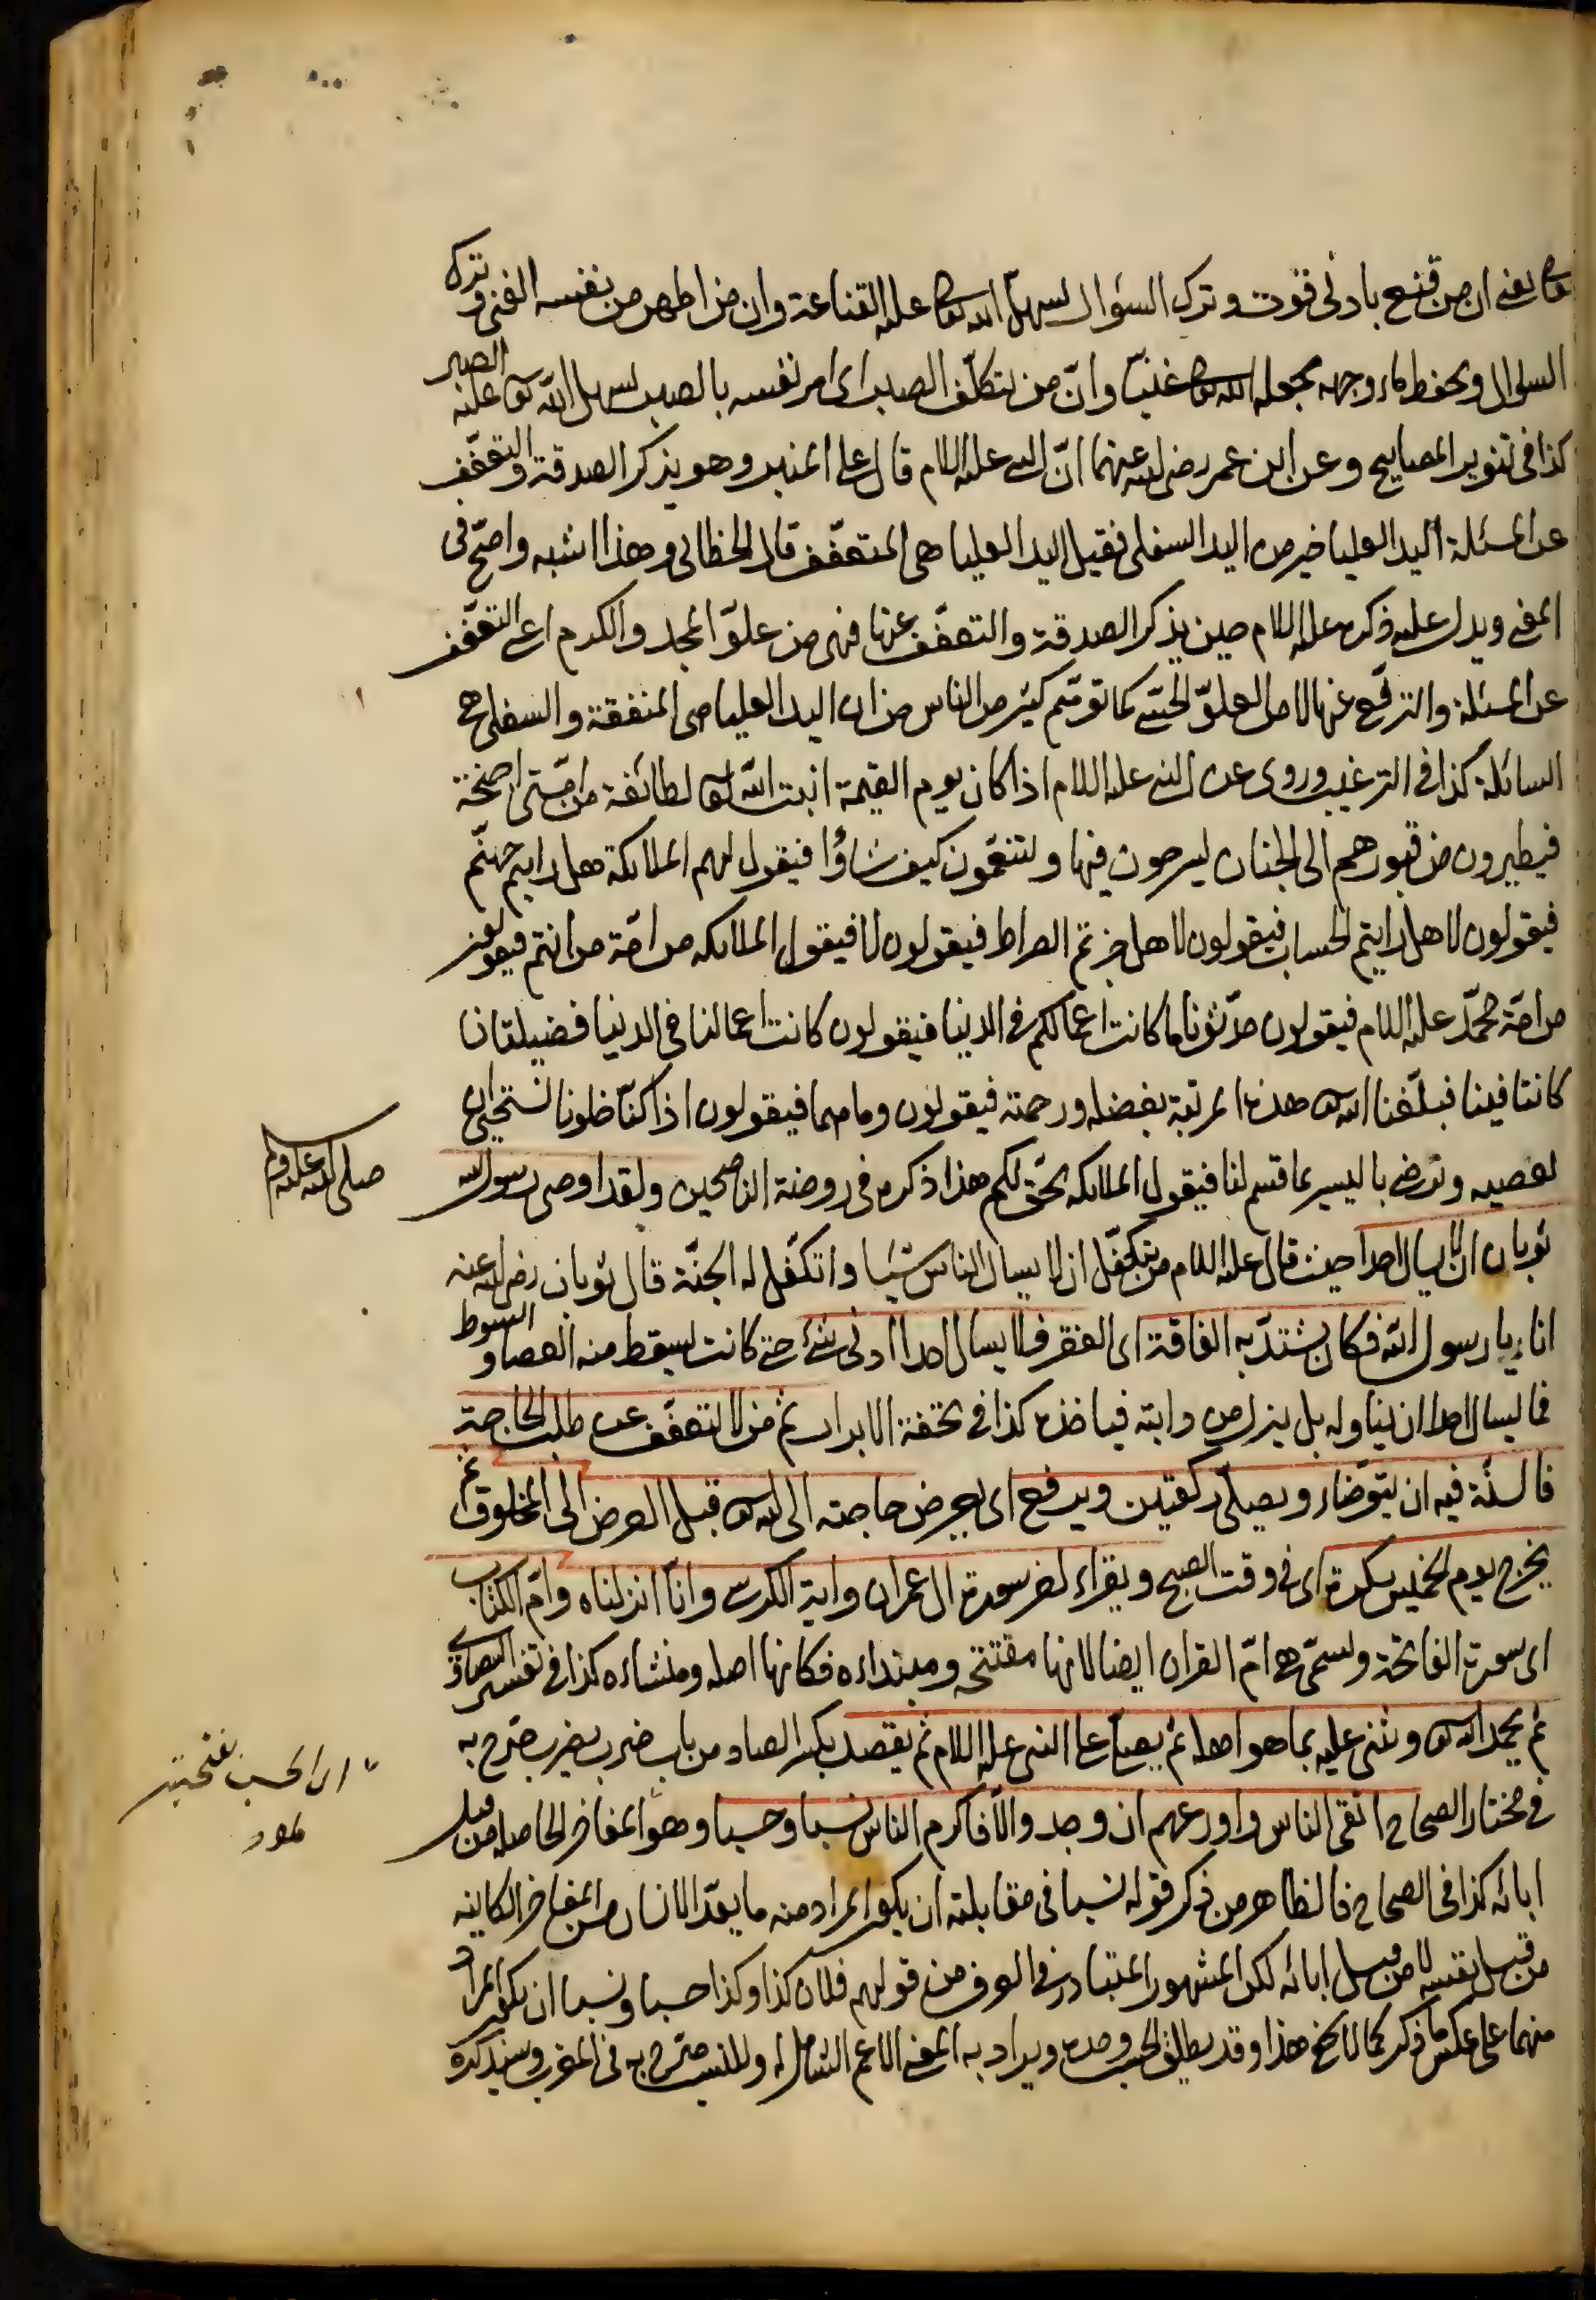 تعالى يعنى ان من قنع بادنى قوت وترك السؤال يسهل الله تعالى عليه القناعة وان من اظهر من نفسه الغنى وترك
السؤال ويحفظ ماء وجهه يجعله الله تعالى غنيّا وانّ من يتكلّف الصبر اى امر نفسه بالصبر يسهل الله تعالى عليه الصبر
كذا فى تنوير المصابيح وعن ابن عمر رضى الله عنهما انّ النبى عليه السلام قال على المنبر وهو يذكر الصدقة والتعفّف
عن المسئلة اليد العليا خير من اليد السفلى فقيل اليد العليا هى المتعفّف قال الخطابى وهذا اشبه واصحّ فى
المعنى ويدل عليه ذكره عليه السلام حين يذكر الصدقة والتعفّف عنها فهى من علوّ المجد والكرم اى التعفّف
عن المسئلة والترفّع عنها لا من العلوّ الحسّى كما توهّم كثير من الناس من ان اليد العليا هى المنفقة والسفلى هى
السائلة كذا فى الترغيب وروى عن النبى عليه السلام اذا كان يوم القيمة انبت الله تعالى لطائفة من امّتى اجنحة
فيطيرون من قبورهم الى الجنان يسرحون فيها ويتنعّمون كيف شاؤا فيقول لهم الملائكة هل رايتم جهنّم
فيقولون لا هل رايتم الحساب فيقولون لا هل جزتم الصراط فيقولون لا فيقول الملائكه من امّة من انتم فيقولون
من امّة محمّد عليه السلام فيقولون حدّثونا ما كانت اعمالكم فى الدنيا فيقولون كانت اعمالنا فى الدنيا فضيلتان
كانتا فينا فبلّغنا الله تعالى هذه المرتبة بفضله ورحمته فيقولون وما هما فيقولون اذا كنّا خلونا نستحيى ان
نعصيه ونرضى باليسير بما قسم لنا فيقول الملائكه يحقّ لكم هذا ذكره فى روضة الناصحين ولقد اوصى رسول الله
صلى الله عليه وسلم
ثوبان ان لا يسال احدا حيث قال عليه السلام من يتكفّل ان لا يسال الناس شيئا واتكفّل له الجنّة قال ثوبان رضى الله عنه
انا يا رسول الله فكان يشتدّ به الفاقة اى الفقر فلا يسال احدا ادنى شئ حتى كانت يسقط منه العصا والسوط
فما يسال احدا ان يناوله بل ينزل من دابته فياخذه كذا فى تحفة الابرار ثم من لا يتعفّف عن طلب الحاجة
فالسنّة فيه ان يتوضّاء ويصلّى ركعتين ويرفع اى يعرض حاجته الى الله تعالى قبل العرض الى المخلوق ثم
يخرج يوم الخميس بكرة اى فى وقت الصبح ويقراء اخر سورة ال عمران واية الكرسى وانّا انزلناه وامّ الكتاب
اى سورة الفاتحة وتسمّى هى امّ القران ايضا لانها مفتتحه ومبتداءه فكانها اصله ومنشاءه كذا فى تفسير البيضاوى
ثم يحمد الله تعالى ويثنى عليه بما هو اهله ثم يصلّى على النبى عليه السلام ثم يقصد بكسر الصاد من باب ضرب يضرب صرّح به
فى مختار الصحاح اتقى الناس واورعهم ان وجد والّا فاكرم الناس نسبا وحسبا وهو المفاخر الحاصله من قبل
اى الحسب بفتحتين
ابائه كذا فى الصحاح فالظاهر من ذكر قوله نسبا فى مقابلته ان يكون المراد منه ما يعدّ الانسان من المفاخر الكاينه
من قبل نفسه لا من قبل ابائه لكن المشهور المتبادر فى العرف من قولهم فلان كذا وكذا حسبا ونسبا ان يكون المراد
منهما على عكس ما ذكر كما لا يخفى هذا وقد يطلق الحسب وحده ويراد به المعنى الاعم الشامل له وللنسب صرّح به فى المغرب وسنذكره